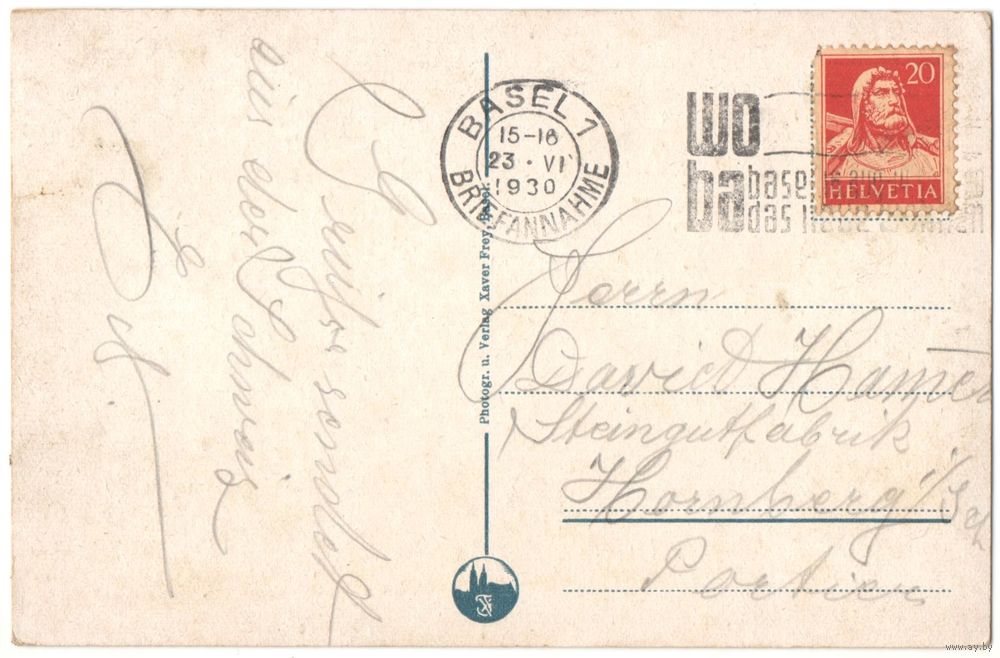 Grüsse sendet
aus der Schweiz
BASEL 1
15-16
23 · VI
1930
BRIEFANNAHME
wo
ba basel
das
20
HELVETIA
Photogr. u. Verlag Xaver Frey, Basel.
Herrn
David
Steingutfabrik
Hornberg
Portier
www.ay.by